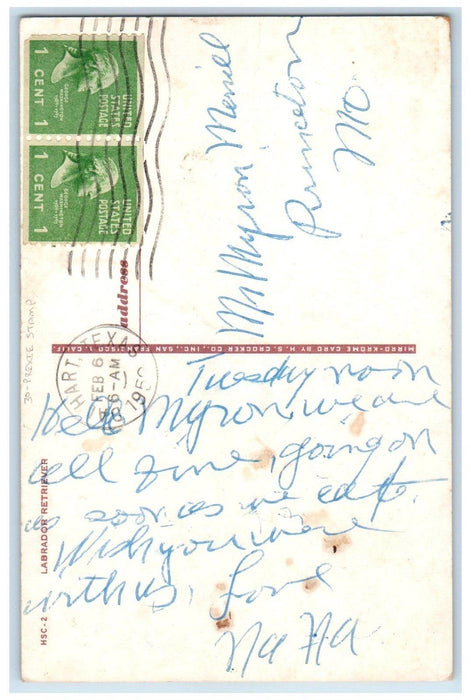 1 CENT 1
GEORGE WASHINGTON
UNITED STATES POSTAGE
1 CENT 1
GEORGE WASHINGTON
UNITED STATES POSTAGE
HART, TEXAS
FEB 6
6-AM
195
address
Mr Myron Merrill
Princeton
Mo.
MIRRO-KROME CARD BY H. S. CROCKER CO., INC., SAN FRANCISCO 1, CALIF.
30-PREXIE STAMP
Tuesday noon
Hello Myron, we are
all fine, going on
as soon as we eat.
Wish you were
with us, Love
Na Na
LABRADOR RETRIEVER
HSC-2